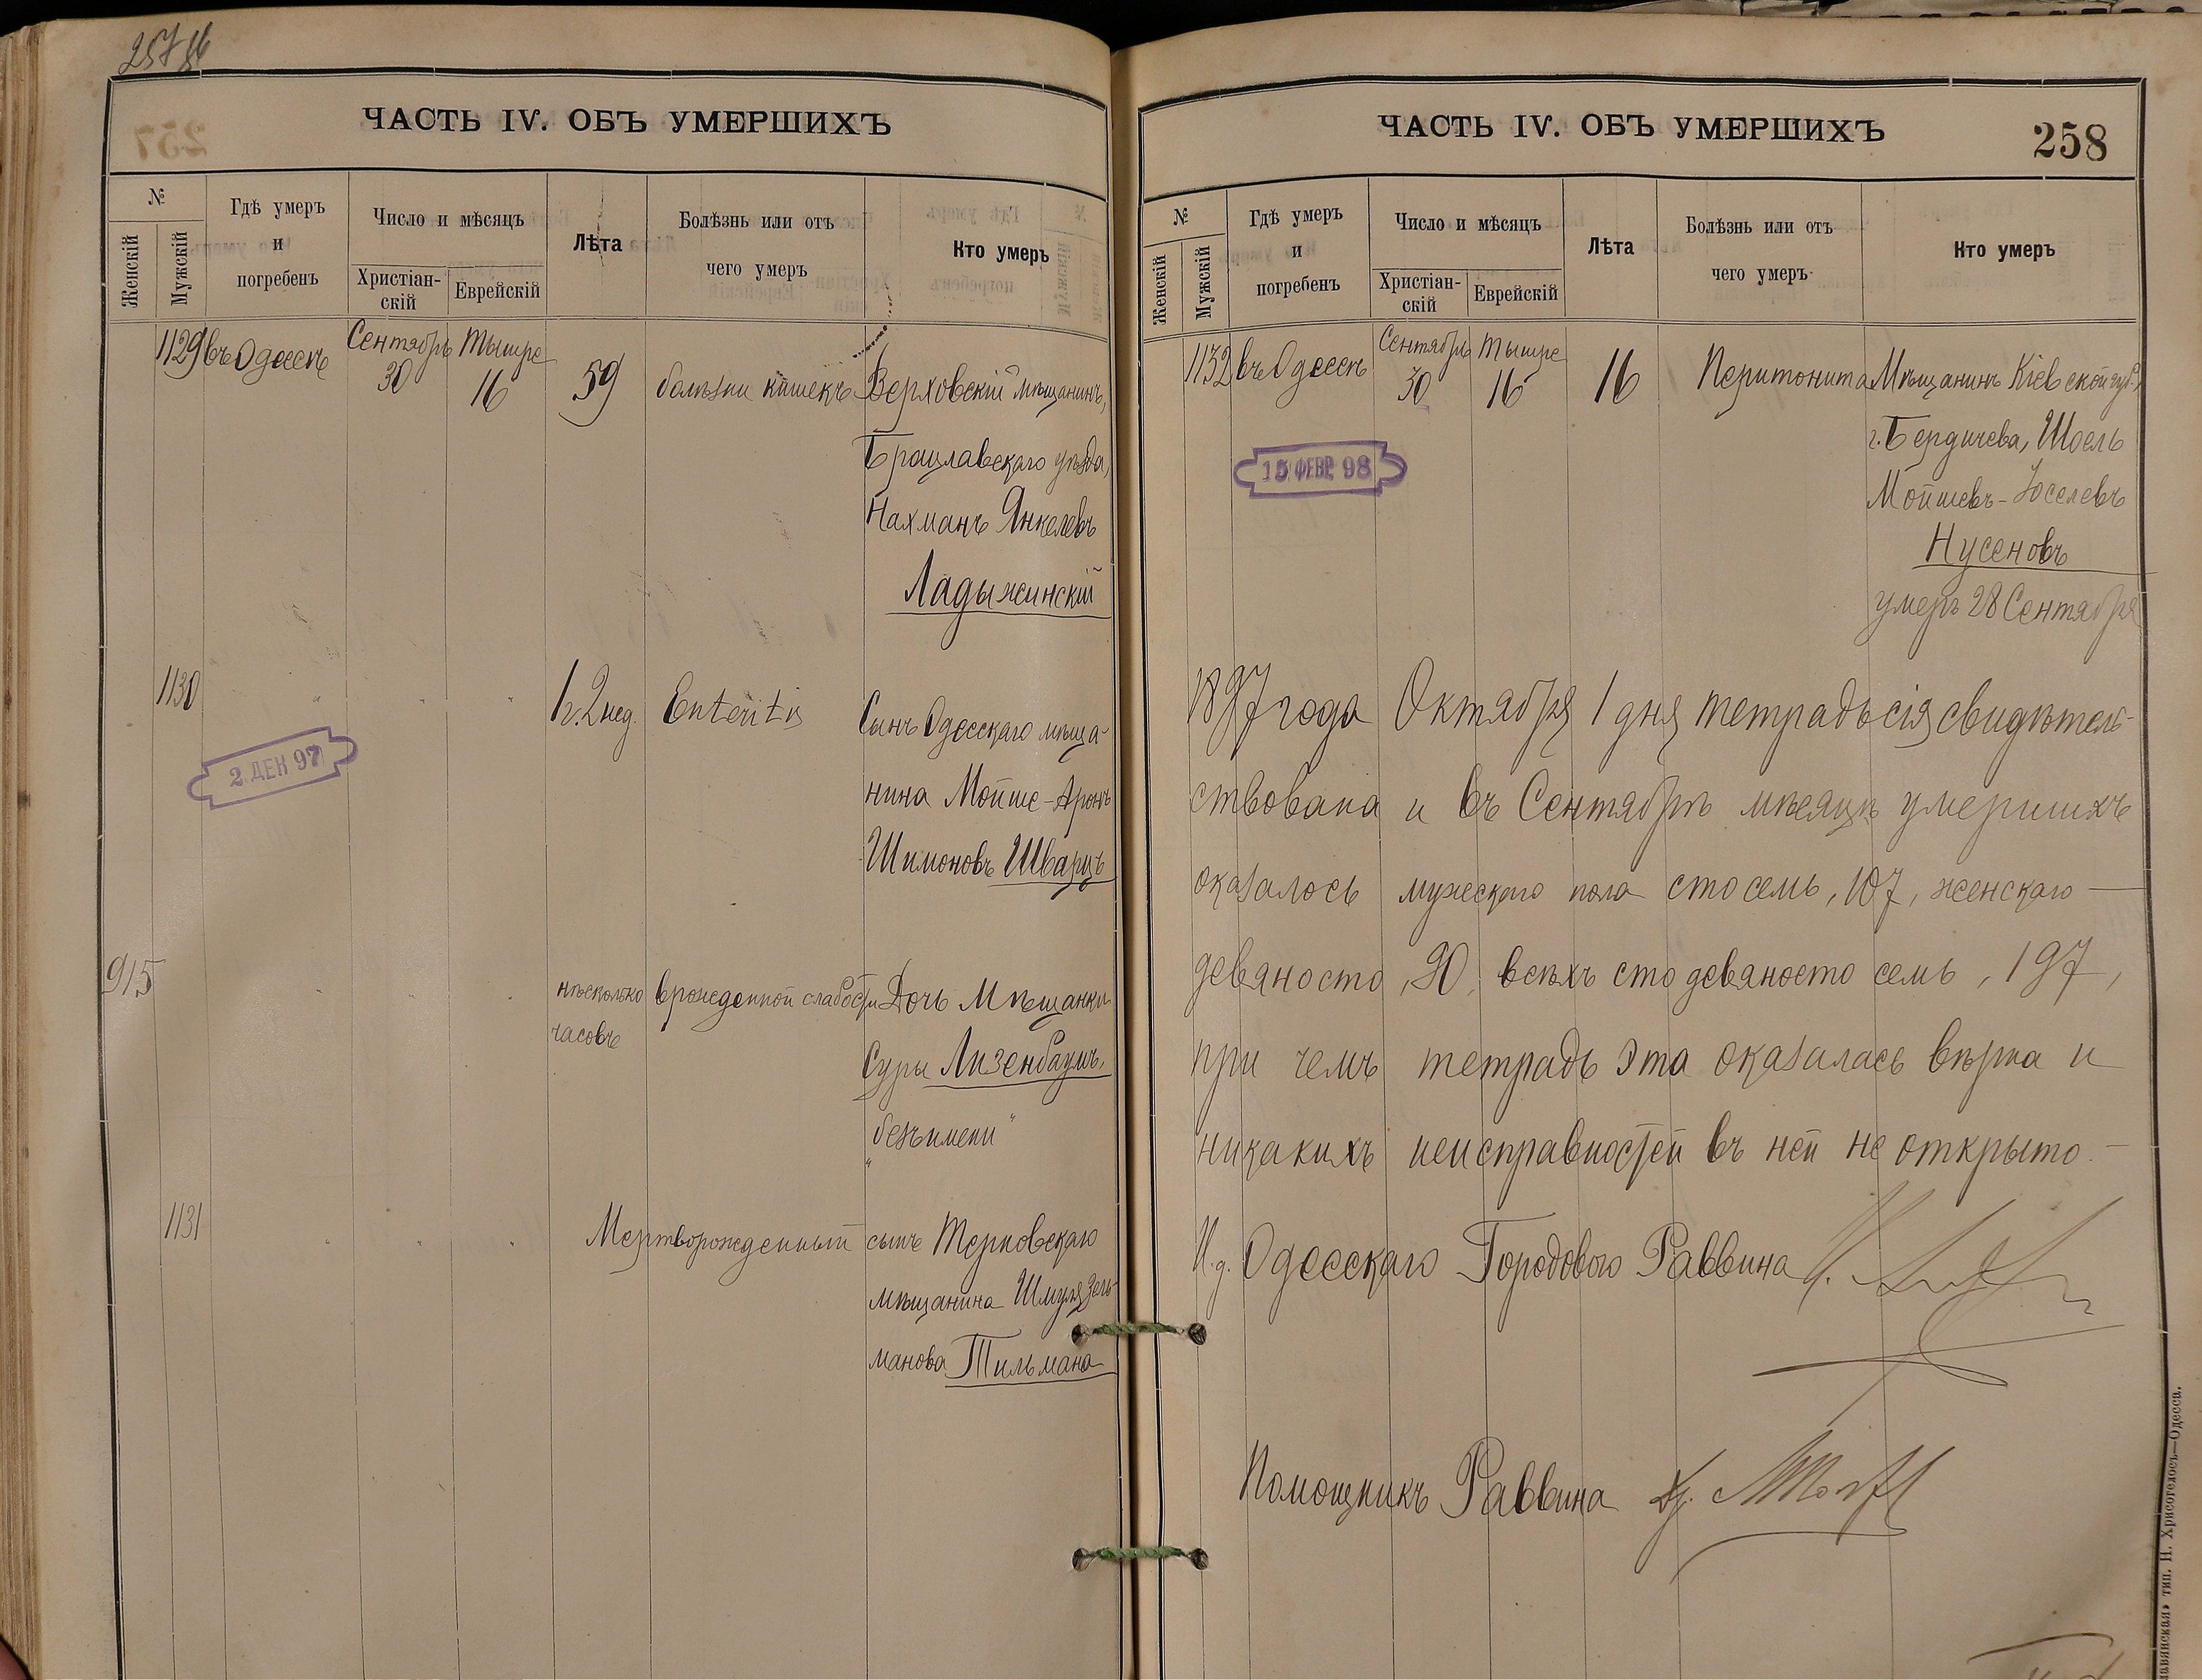 257
ЧАСТЬ IV. ОБЪ УМЕРШИХЪ
№
Женскій
Мужскій
Гдѣ умеръ
и
погребенъ
Число и мѣсяцъ
Христіан-
скій
Еврейскій
Лѣта
Болѣзнь или отъ
чего умеръ
Кто умеръ
1129 въ Одессѣ Сентябрь 30 Тышре 16 59 болѣзни кишекъ Верховскій мѣщанинъ,
Брацлавскаго уѣзда,
Нахманъ Янкелевъ
Ладыжинскій
1130 " " " 1г. 2 нед. Enteritis Сынъ Одесскаго мѣща-
нина Мойше-Аронъ
Шимоновъ Шварцъ
2. ДЕК 97
915 нѣсколько врожденной слабости Дочь Мѣщанки
часовъ
Суры Лизенбаумъ,
"безъимени"
1131 " " " Мертворожденный сынъ Терновскаго
мѣщанина Шмуля Зель-
манова Тильмана
ЧАСТЬ IV. ОБЪ УМЕРШИХЪ
258
№
Женскій
Мужскій
Гдѣ умеръ
и
погребенъ
Число и мѣсяцъ
Христіан-
скій
Еврейскій
Лѣта
Болѣзнь или отъ
чего умеръ
Кто умеръ
1132 въ Одессѣ Сентябрь 30 Тышре 16 16 Перитонита Мѣщанинъ Кіевской губ.,
г. Бердичева, Шоель
Мойшевъ-Іоселевъ
Нусеновъ
умеръ 28 Сентября
15 ФЕВР. 98
1897 года Октября 1 дня тетрадь сія свидѣтель-
ствована и въ Сентябрѣ мѣсяцѣ умершихъ
оказалось мужескаго пола сто семь, 107, женскаго —
девяносто, 90, всѣхъ сто девяносто семь, 197,
при чемъ тетрадь эта оказалась вѣрна и
никакихъ неисправностей въ ней не открыто. —
И.д. Одесскаго Городового Раввина
Помощникъ Раввина
тип. Н. Хрисогелосъ—Одесса.